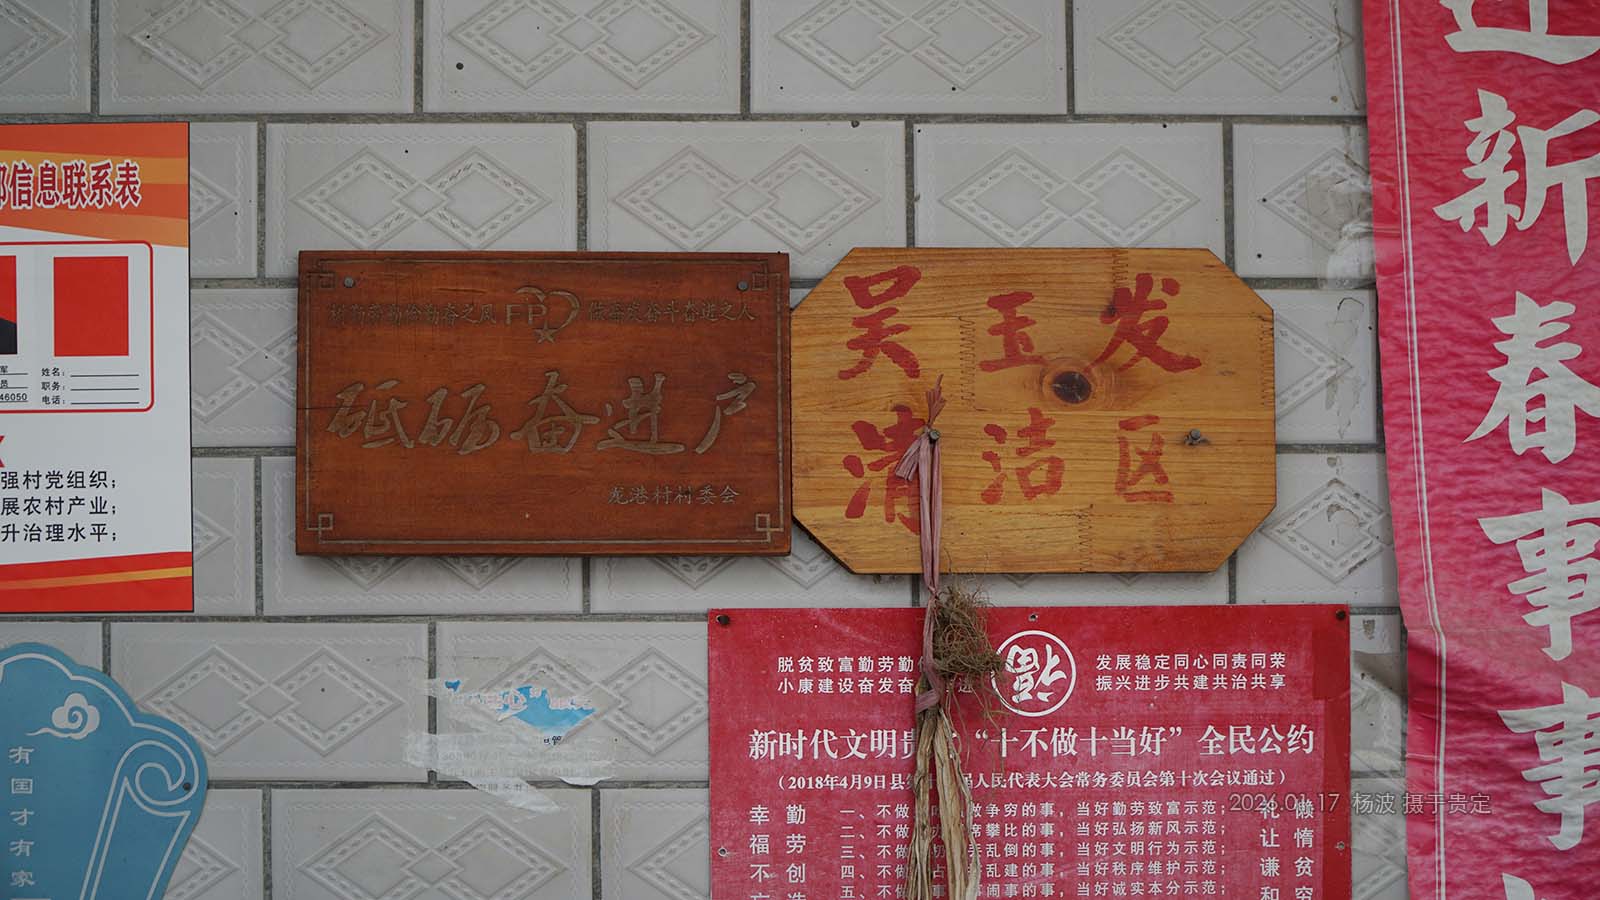 信息联系表
姓名：
职务：
电话：
46050
强村党组织；
展农村产业；
升治理水平；
有国才有家
树勤劳勤俭勤奋之风 FP 做奋发奋斗奋进之人
砥砺奋进户
龙港村村委会
吴玉发
清洁区
脱贫致富勤劳勤
小康建设奋发奋 进
福
发展稳定同心同责同荣
振兴进步共建共治共享
新时代文明贵 “十不做十当好”全民公约
（2018年4月9日县第十 届人民代表大会常务委员会第十次会议通过）
勤劳创
幸福不
一、不做 争穷的事，当好勤劳致富示范；
二、不做 席攀比的事，当好弘扬新风示范；
三、不做 乱倒的事，当好文明行为示范；
四、不做 占 乱建的事，当好秩序维护示范；
五、不做 事 闹事的事，当好诚实本分示范；
懒惰贫穷
礼让谦和
迎新春事事
2026.01.17 杨波 摄于贵定